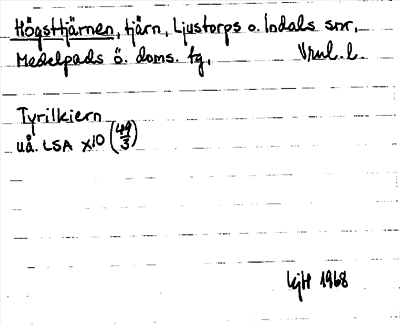 Högsttjärnen, tjärn, Ljustorps o. Indals snr,
Medelpads ö. doms. tg, Vnl. l.
Tyrilkiern
uå. LSA X10 (49/3)
KjH 1968